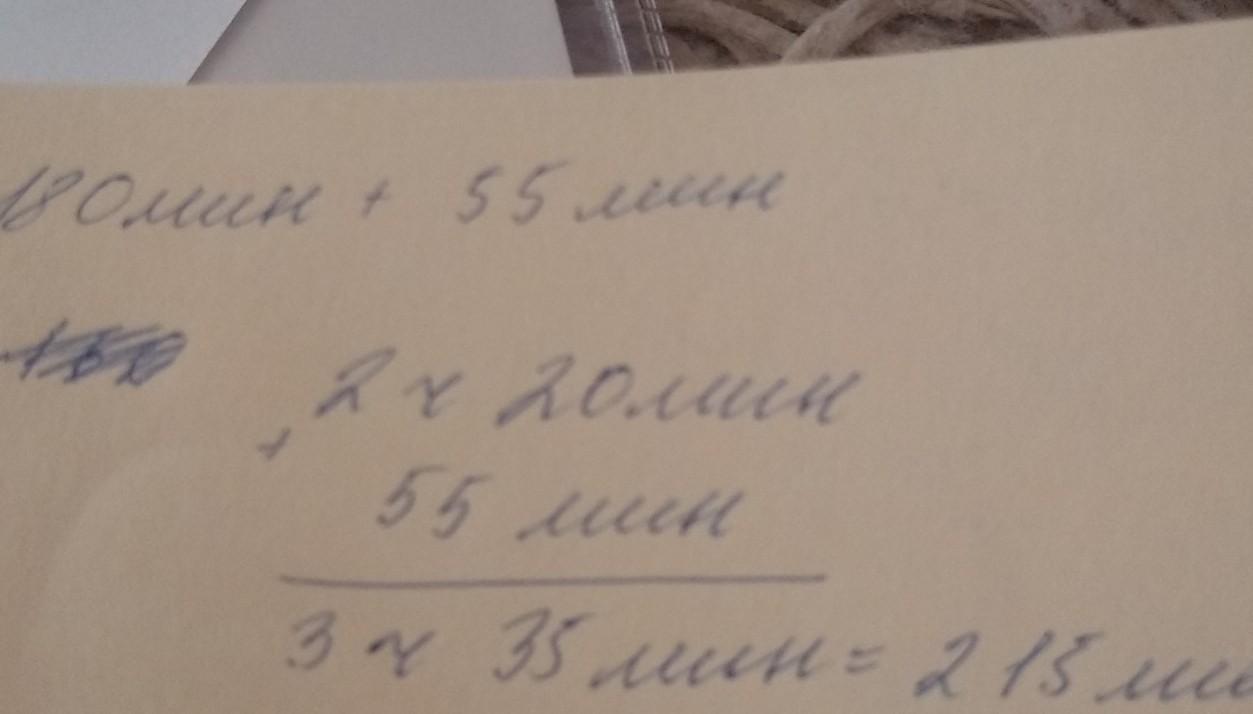 180 мин + 55 мин
2 ч 20 мин
+
55 мин
3 ч 35 мин = 215